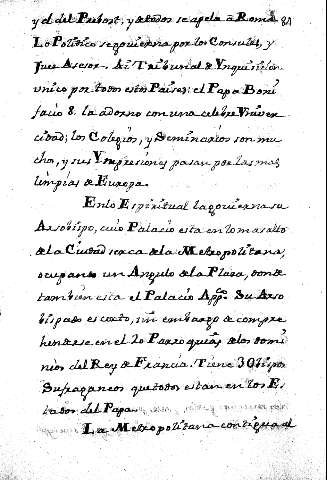 y el del Prebost, y de todos se apela à Roma. 81
Lo Politico se govierna por los Consules, y
Juez Asesor. Ai Tribunal de Ynquisision
unico por todos estos Paises: el Papa Boni
facio 8. la adorno con una celebre Univer
cidad; los Colegios, y Seminarios son mu
chos, y sus Ympresiones pasan por las mas
limpias de Europa.
En lo Espiritual la govierna su
Arsobispo, cuio Palacio esta en lo mas alto
de la Ciudad serca de la Metropolitana,
ocupando un Angulo de la Plaza, donde
tambien esta el Palacio Appco. Su Arso
bispado es corto, sin embargo de compre
henderse en el 20 Parroquias de los domi
nios del Rey de Francia. Tiene 3 Obispos
Sufraganeos que todos estan en los Es
tados del Papa.
La Metropolitana contigua al